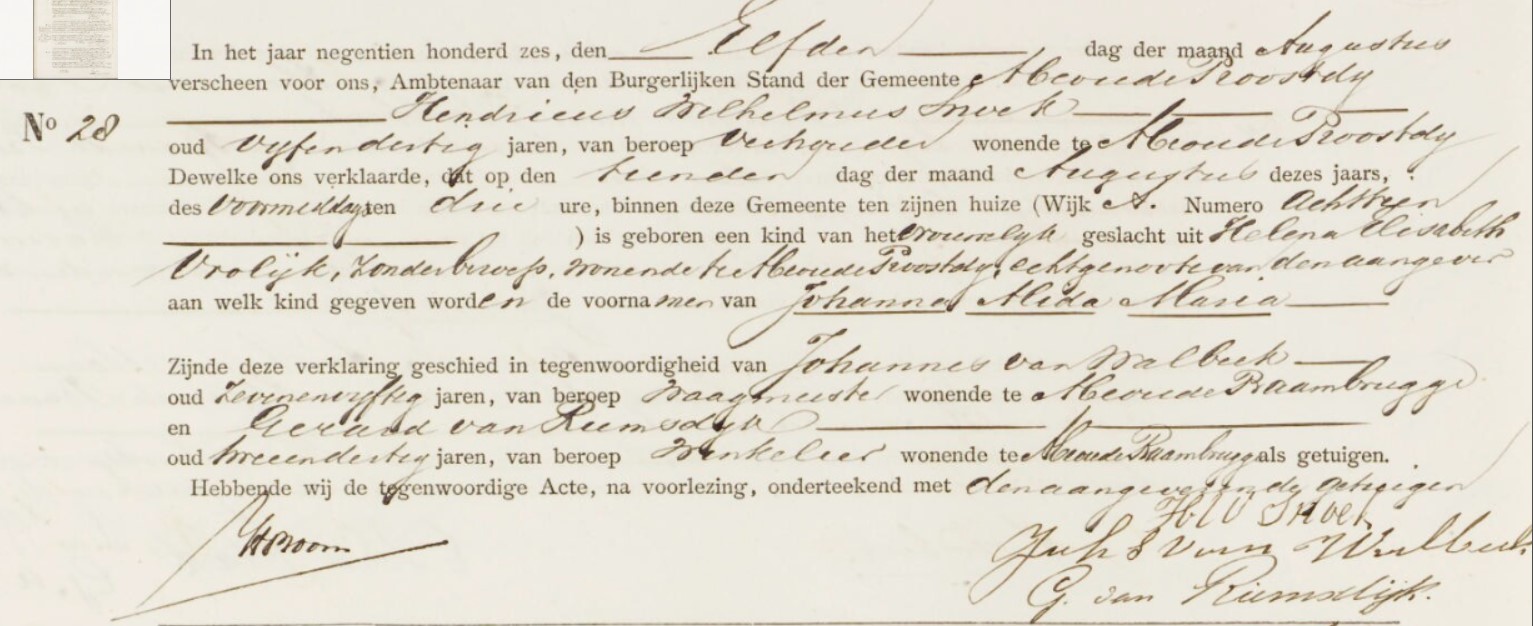 In het jaar negentien honderd zes, den Elfden dag der maand Augustus
verscheen voor ons, Ambtenaar van den Burgerlijken Stand der Gemeente Abcoude Proostdy
Hendricus Wilhelmus Snoek
No 28
oud vyfendertig jaren, van beroep Veehouder wonende te Abcoude Proostdy
Dewelke ons verklaarde, dat op den tienden dag der maand Augustus dezes jaars,
des Voormiddags ten drie ure, binnen deze Gemeente ten zijnen huize (Wijk A. Numero Achttien
) is geboren een kind van het vrouwelyk geslacht uit Helena Elisabeth
Vrolijk, zonder beroep, wonende te Abcoude Proostdy, echtgenoote van den aangever
aan welk kind gegeven worden de voornamen van Johanna Alida Maria
Zijnde deze verklaring geschied in tegenwoordigheid van Johannes van Walbeek
oud Zevenenvyftig jaren, van beroep Waagmeester wonende te Abcoude Baambrugge
en Gerard van Riemsdyk
oud tweeendertig jaren, van beroep Winkelier wonende te Abcoude Baambrugge als getuigen.
Hebbende wij de tegenwoordige Acte, na voorlezing, onderteekend met den aangever en de getuigen
HW Snoek
Joh S van Walbeek
G. van Riemsdijk.